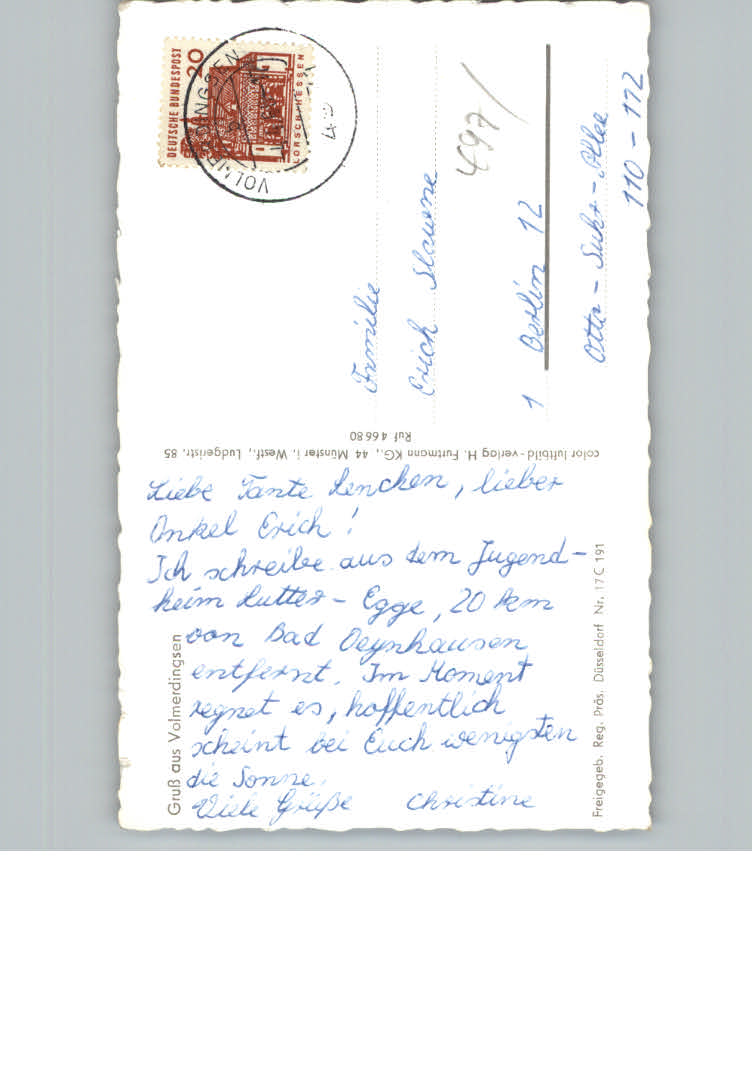 Liebe Tante Lenchen, lieber
Onkel Erich!
Ich schreibe aus dem Jugend-
heim Lutter-Egge, 20 km
von Bad Oeynhausen
entfernt. Im Moment
regnet es, hoffentlich
scheint bei Euch wenigsten
die Sonne.
Viele Grüße Christine
Gruß aus Volmerdingsen
Freigegeb. Reg. Präs. Düsseldorf Nr. 17 C 191
color luftbild-verlag H. Furtmann KG., 44 Münster i. Westf., Ludgeristr. 85
Ruf 4 66 80
DEUTSCHE BUNDESPOST
20
LORSCH/HESSEN
VOLMERDINGSEN
497/
Familie
Erich
1 Berlin 12
Otto-Suhr-Allee
110-112